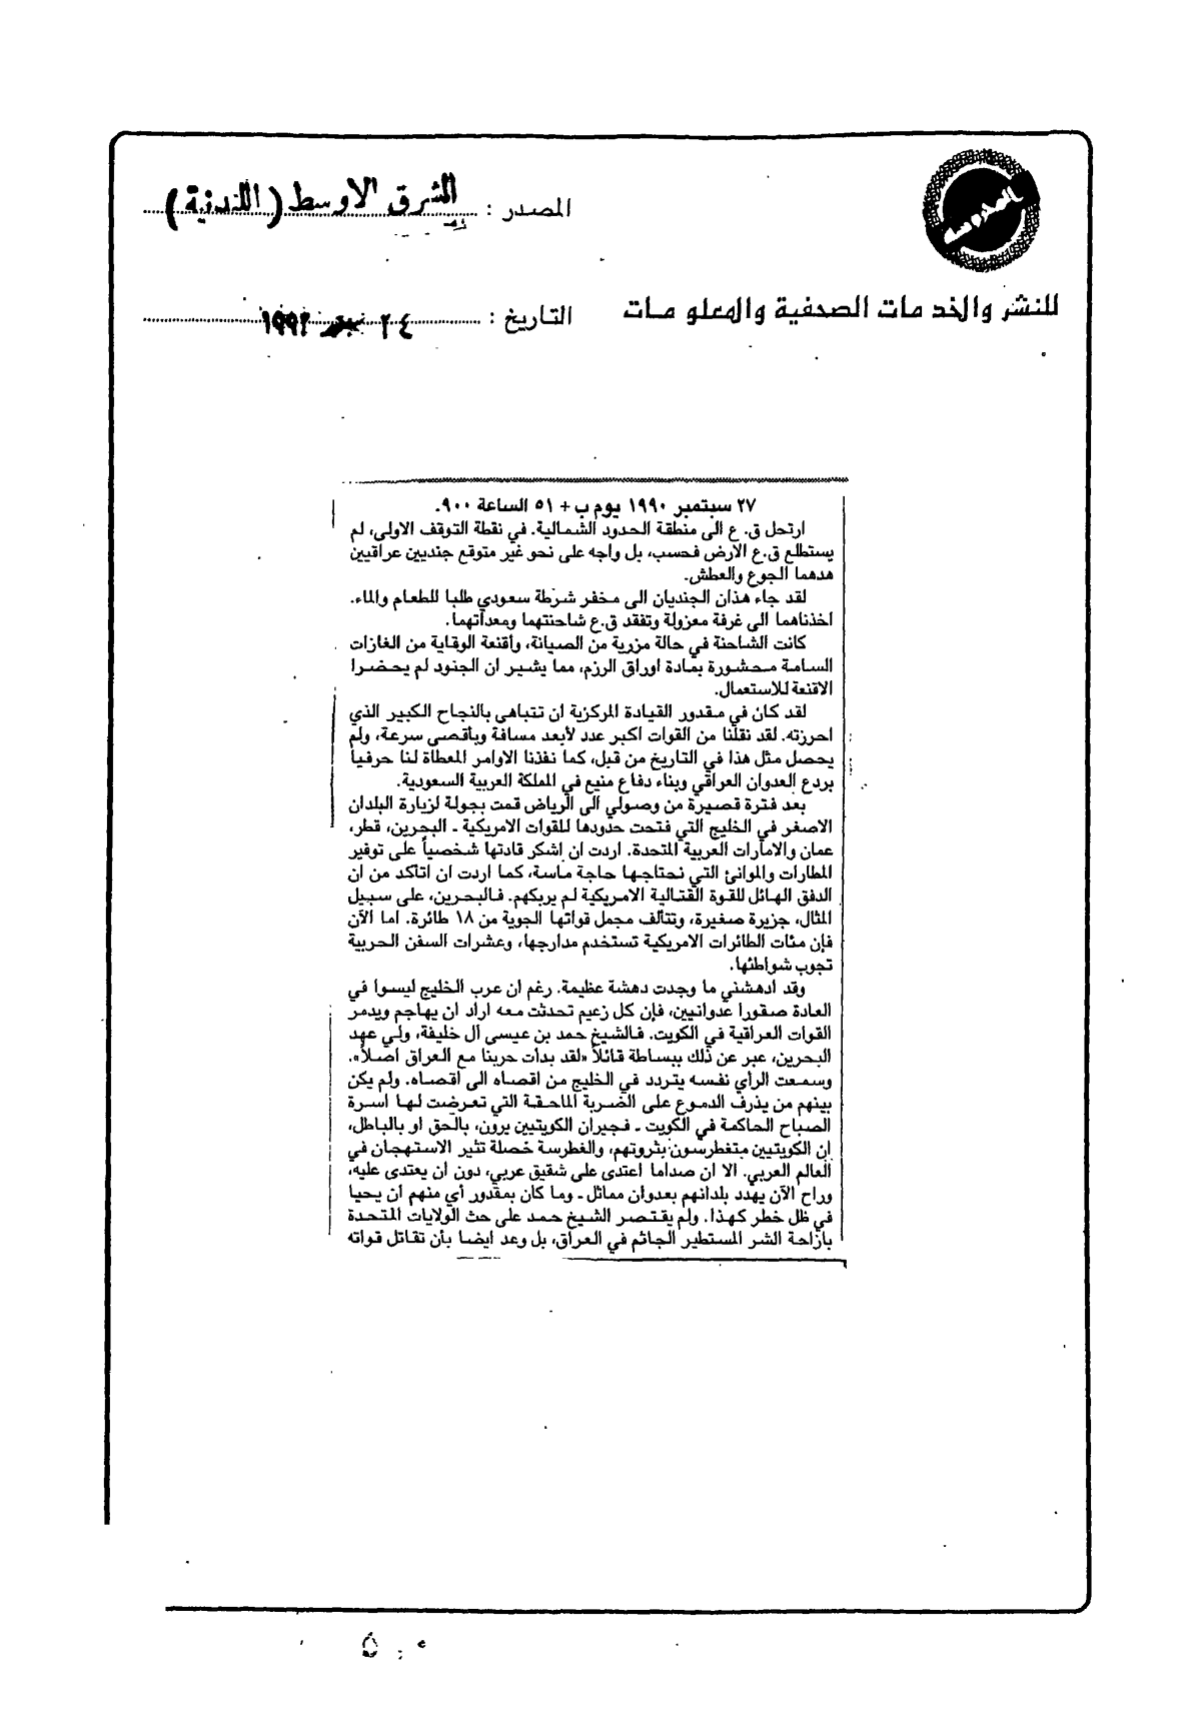 المصدر : الشرق الاوسط (اللندنية)
للنشر والخدمات الصحفية والمعلومات
التاريخ : ٢٤ ١٩٩٢
٢٧ سبتمبر ١٩٩٠ يوم ب + ٥١ الساعة ٩٠٠.
ارتحل ق. ع الى منطقة الحدود الشمالية. في نقطة التوقف الاولى، لم
يستطلع ق.ع الارض فحسب، بل واجه على نحو غير متوقع جنديين عراقيين
هدهما الجوع والعطش.
لقد جاء هذان الجنديان الى مخفر شرطة سعودي طلبا للطعام والماء.
اخذناهما الى غرفة معزولة وتفقد ق.ع شاحنتهما ومعداتهما.
كانت الشاحنة في حالة مزرية من الصيانة، وأقنعة الوقاية من الغازات
السامة محشورة بمادة اوراق الرزم، مما يشير ان الجنود لم يحضرا
الاقنعة للاستعمال.
لقد كان في مقدور القيادة المركزية ان تتباهى بالنجاح الكبير الذي
احرزته. لقد نقلنا من القوات اكبر عدد لأبعد مسافة وبأقصى سرعة، ولم
يحصل مثل هذا في التاريخ من قبل، كما نفذنا الاوامر المعطاة لنا حرفيا
بردع العدوان العراقي وبناء دفاع منيع في المملكة العربية السعودية.
بعد فترة قصيرة من وصولي الى الرياض قمت بجولة لزيارة البلدان
الاصغر في الخليج التي فتحت حدودها للقوات الامريكية ـ البحرين، قطر،
عمان والامارات العربية المتحدة. اردت ان اشكر قادتها شخصياً على توفير
المطارات والموانئ التي نحتاجها حاجة ماسة، كما اردت ان اتأكد من ان
الدفق الهائل للقوة القتالية الامريكية لم يربكهم. فالبحرين، على سبيل
المثال، جزيرة صغيرة، وتتألف مجمل قواتها الجوية من ١٨ طائرة. اما الآن
فإن مئات الطائرات الامريكية تستخدم مدارجها، وعشرات السفن الحربية
تجوب شواطئها.
وقد ادهشني ما وجدت دهشة عظيمة. رغم ان عرب الخليج ليسوا في
العادة صقورا عدوانيين، فإن كل زعيم تحدثت معه اراد ان يهاجم ويدمر
القوات العراقية في الكويت. فالشيخ حمد بن عيسى آل خليفة، ولي عهد
البحرين، عبر عن ذلك ببساطة قائلاً «لقد بدأت حربنا مع العراق اصلاً».
وسمعت الرأي نفسه يتردد في الخليج من اقصاه الى اقصاه. ولم يكن
بينهم من يذرف الدموع على الضربة الماحقة التي تعرضت لها اسرة
الصباح الحاكمة في الكويت ـ فجيران الكويتيين يرون، بالحق او بالباطل،
ان الكويتيين متغطرسون بثروتهم، والغطرسة خصلة تثير الاستهجان في
العالم العربي. الا ان صداما اعتدى على شقيق عربي، دون ان يعتدى عليه،
وراح الآن يهدد بلدانهم بعدوان مماثل ـ وما كان بمقدور أي منهم ان يحيا
في ظل خطر كهذا. ولم يقتصر الشيخ حمد على حث الولايات المتحدة
بازاحة الشر المستطير الجاثم في العراق، بل وعد ايضا بأن تقاتل قواته